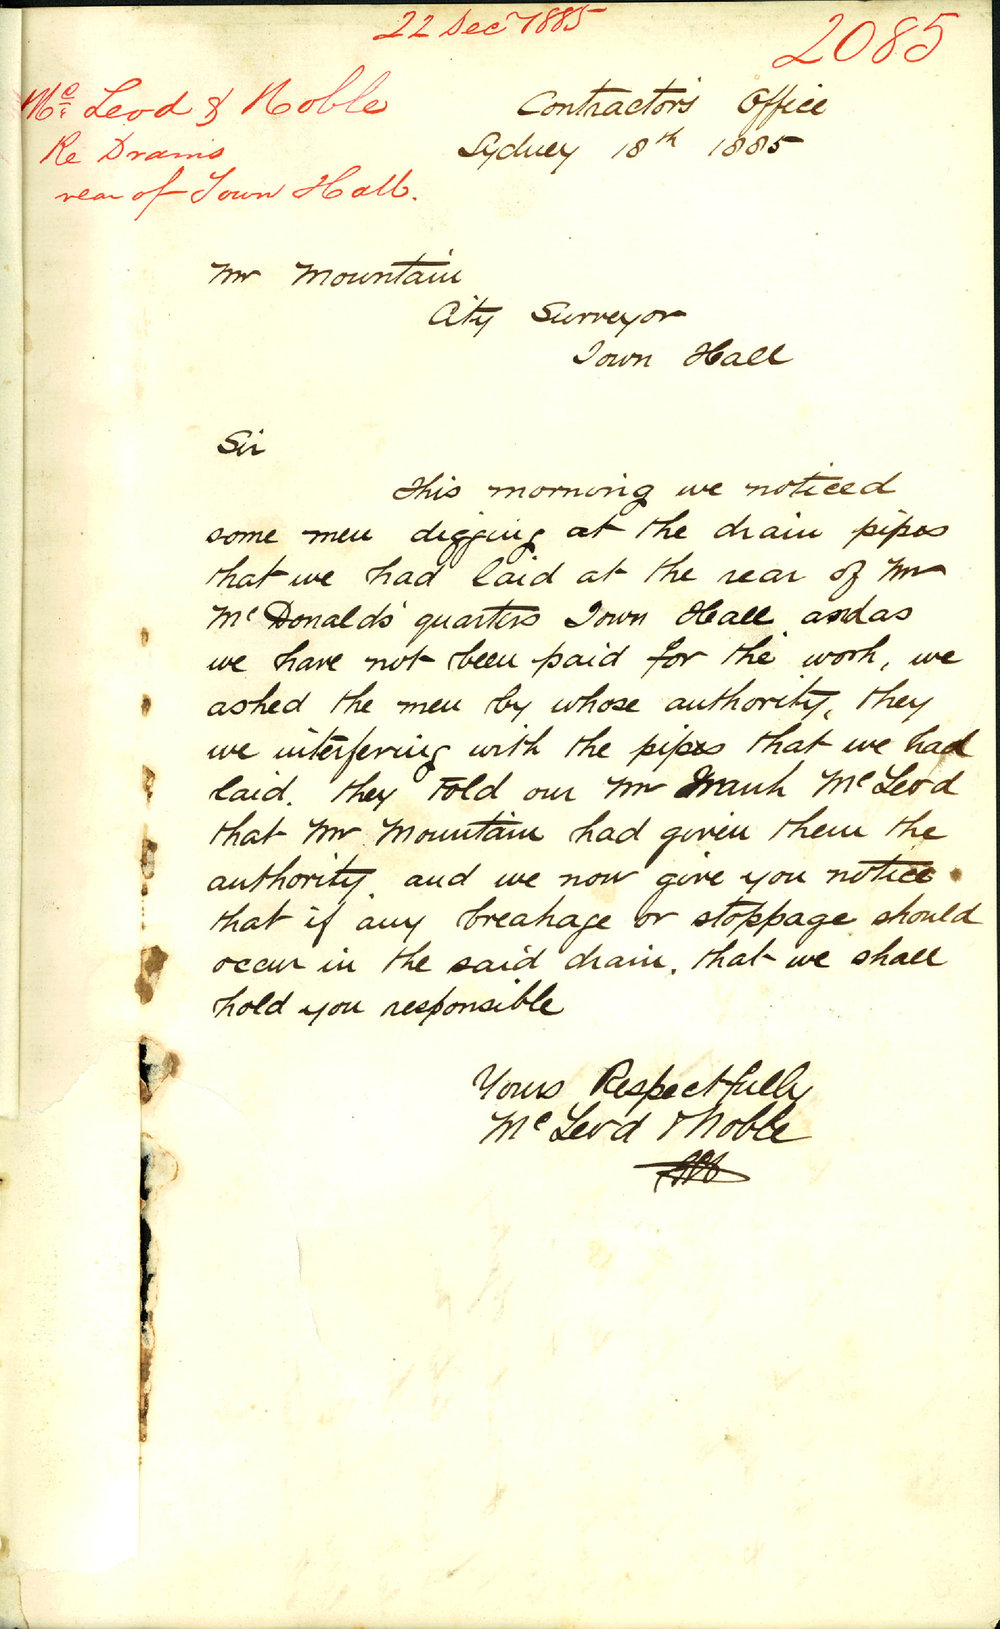 22 Decr 1885
2085
Mc Leod & Noble
Re Drains
rear of Town Hall.
Contractors Office
Sydney 18th 1885
Mr Mountain
City Surveyor
Town Hall
Sir
This morning we noticed
some men digging at the drain pipes
that we had laid at the rear of Mr
McDonalds' quarters Town Hall and as
we have not been paid for the work, we
asked the men by whose authority, they
we interfering with the pipes that we had
laid. they told our Mr Frank McLeod
that Mr Mountain had given them the
authority. and we now give you notice
that if any breakage or stoppage should
occur in the said drain. that we shall
hold you responsible
Yours Respectfully
McLeod & Noble